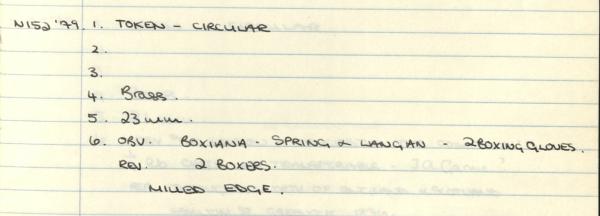 N152'79. 1. TOKEN - CIRCULAR
2.
3.
4. Brass.
5. 23mm.
6. OBV. BOXIANA - SPRING & LANGAN - 2 BOXING GLOVES.
REV. 2 BOXERS.
MILLED EDGE.